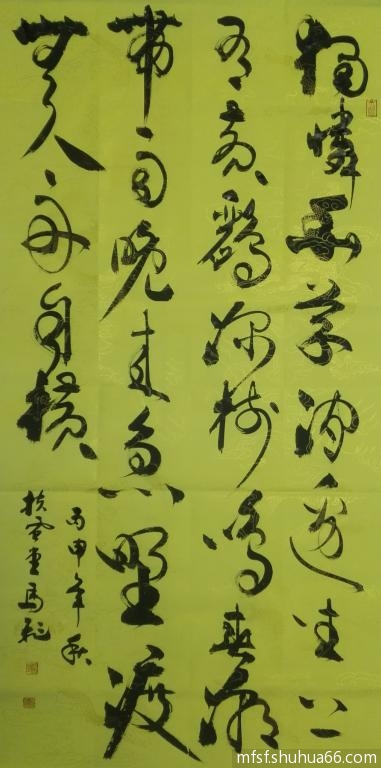 独憐幽草涧邊生上
有黄鸝深樹鳴春潮
帶雨晚来急野渡
無人舟自横
丙申年秋
扶風堂馬
mfsfshuhua66.com